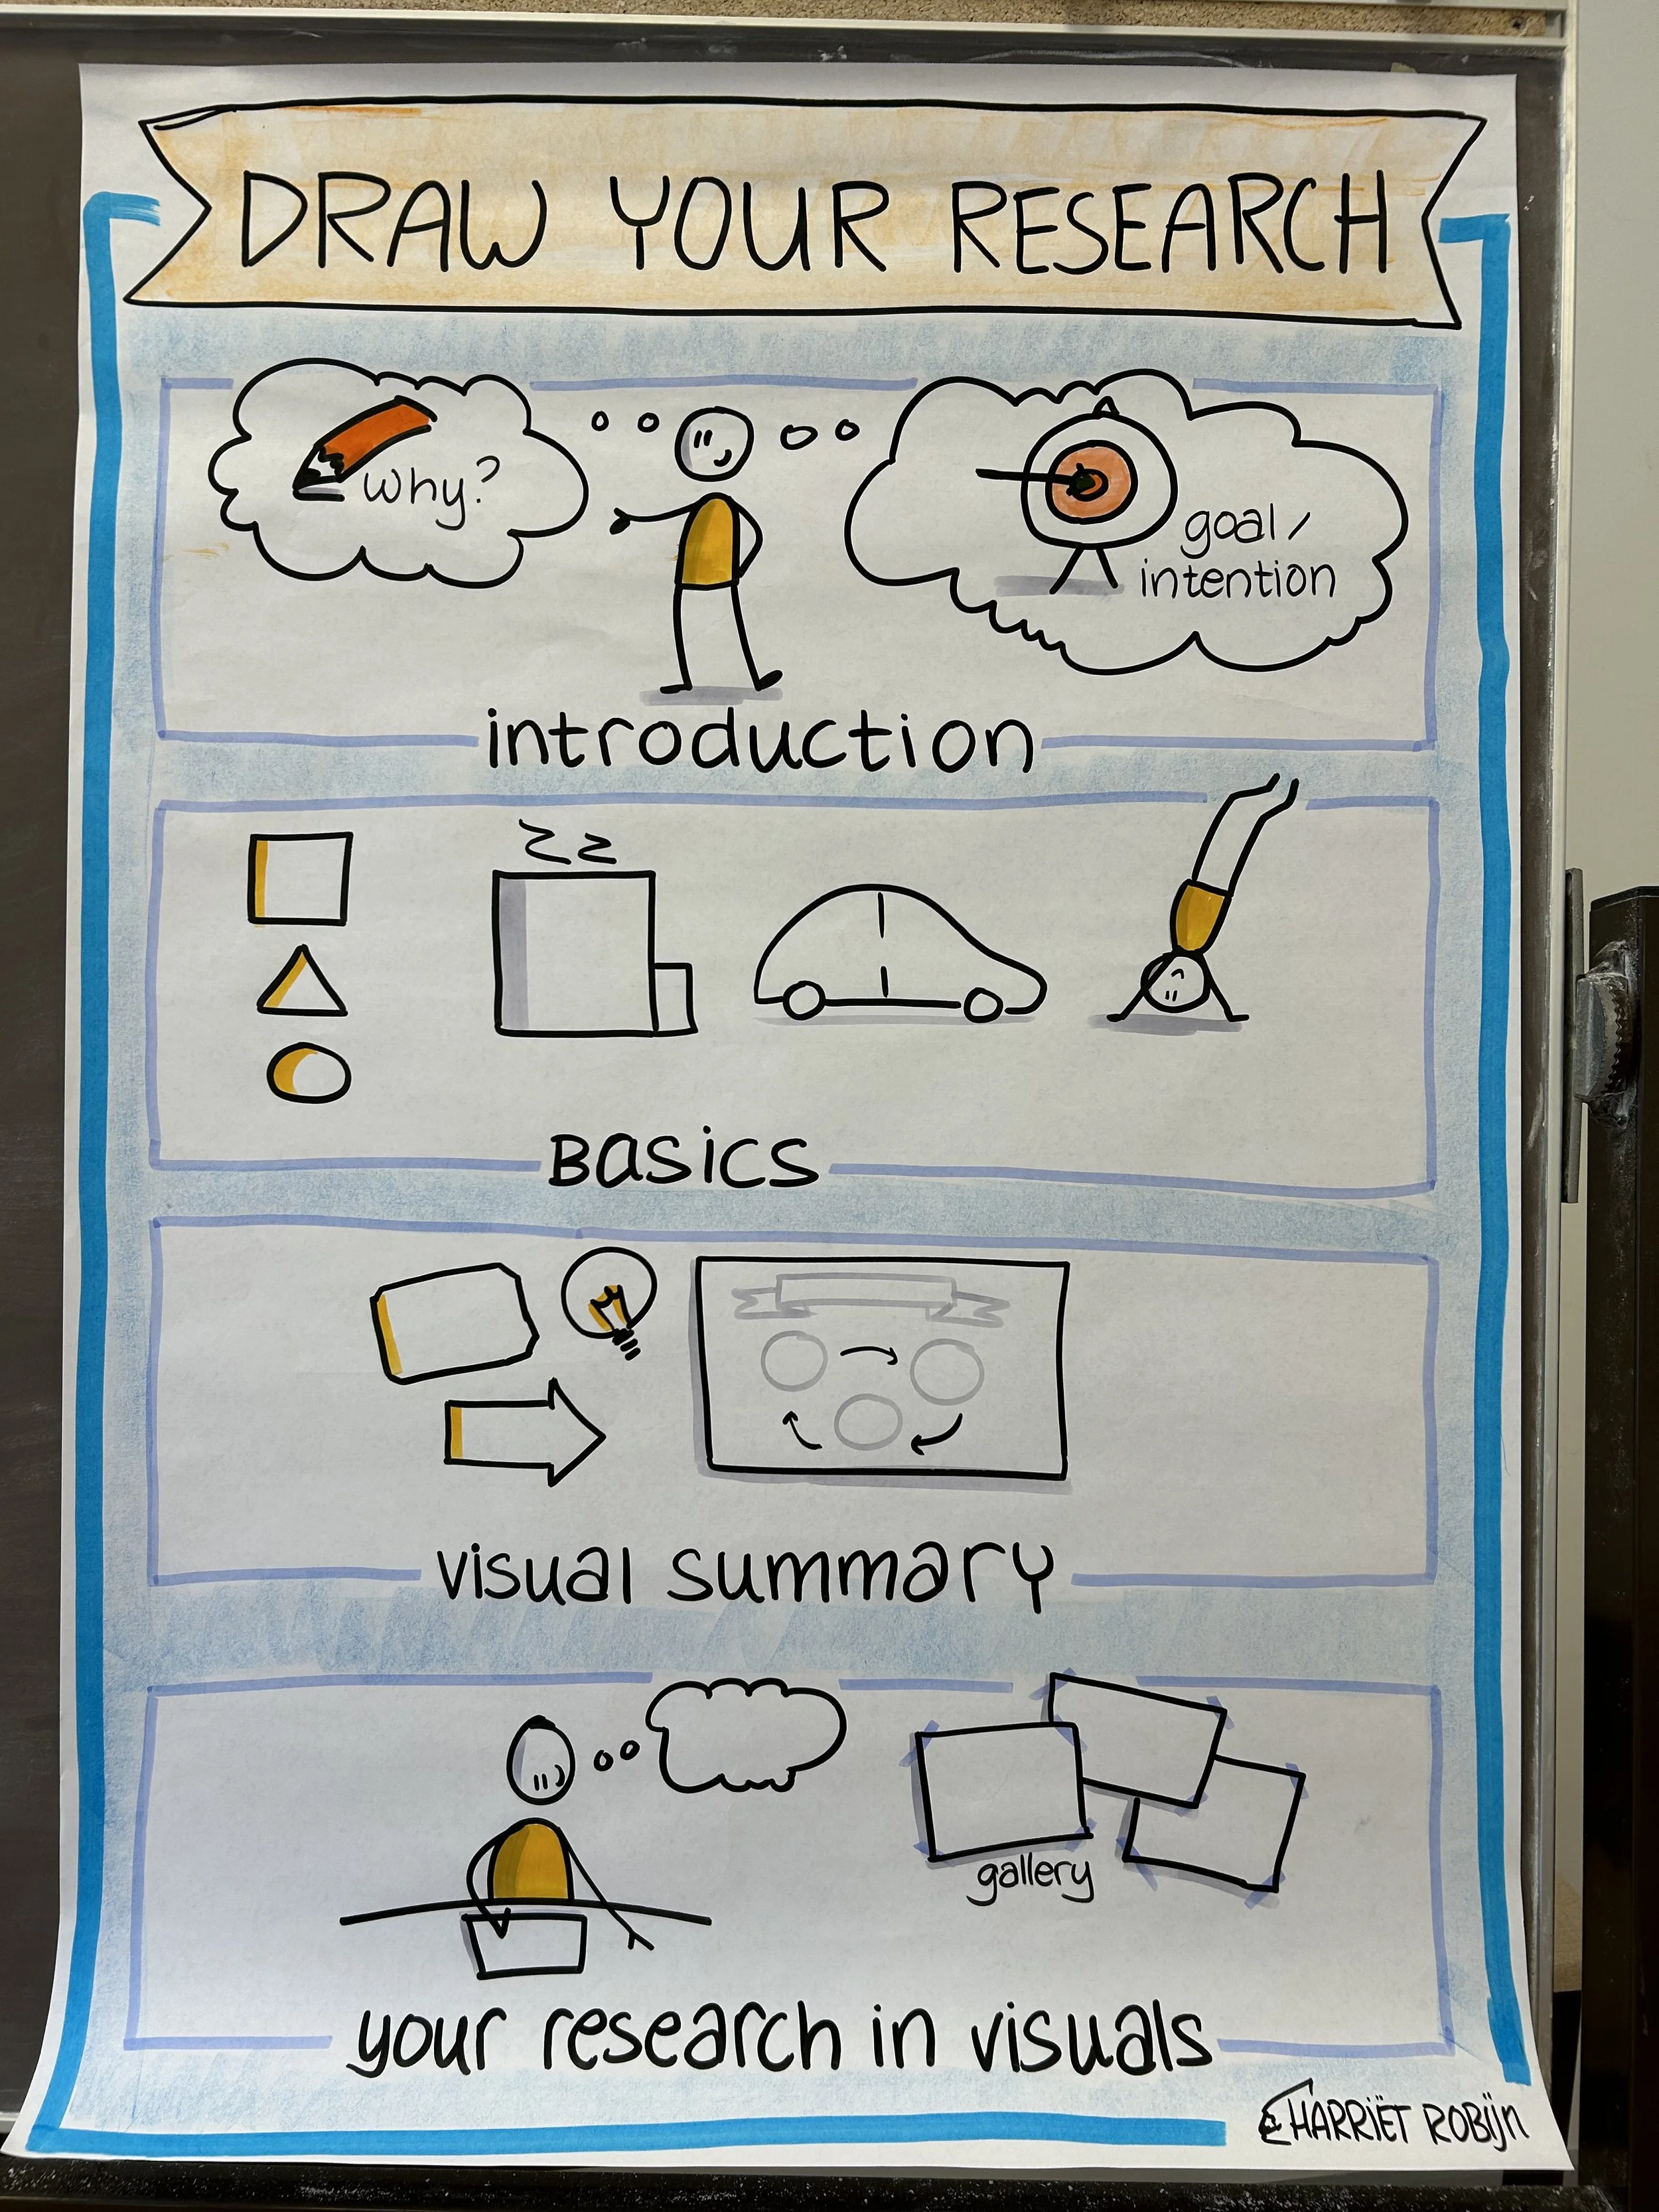 DRAW YOUR RESEARCH
why?
goal/
intention
introduction
Basics
visual summary
gallery
your research in visuals
HARRIËT ROBIJN